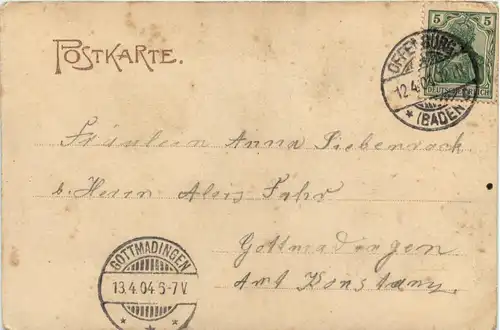 POSTKARTE.
5 5
OFFENBURG
12.4.04
DEUTSCHES REICH
* (BADEN) *
Fräulein Anna Siebenrock
b. Herrn Alois Fahr
Gottmadingen
Amt Konstanz.
GOTTMADINGEN
13.4.04 6-7V.
* * *